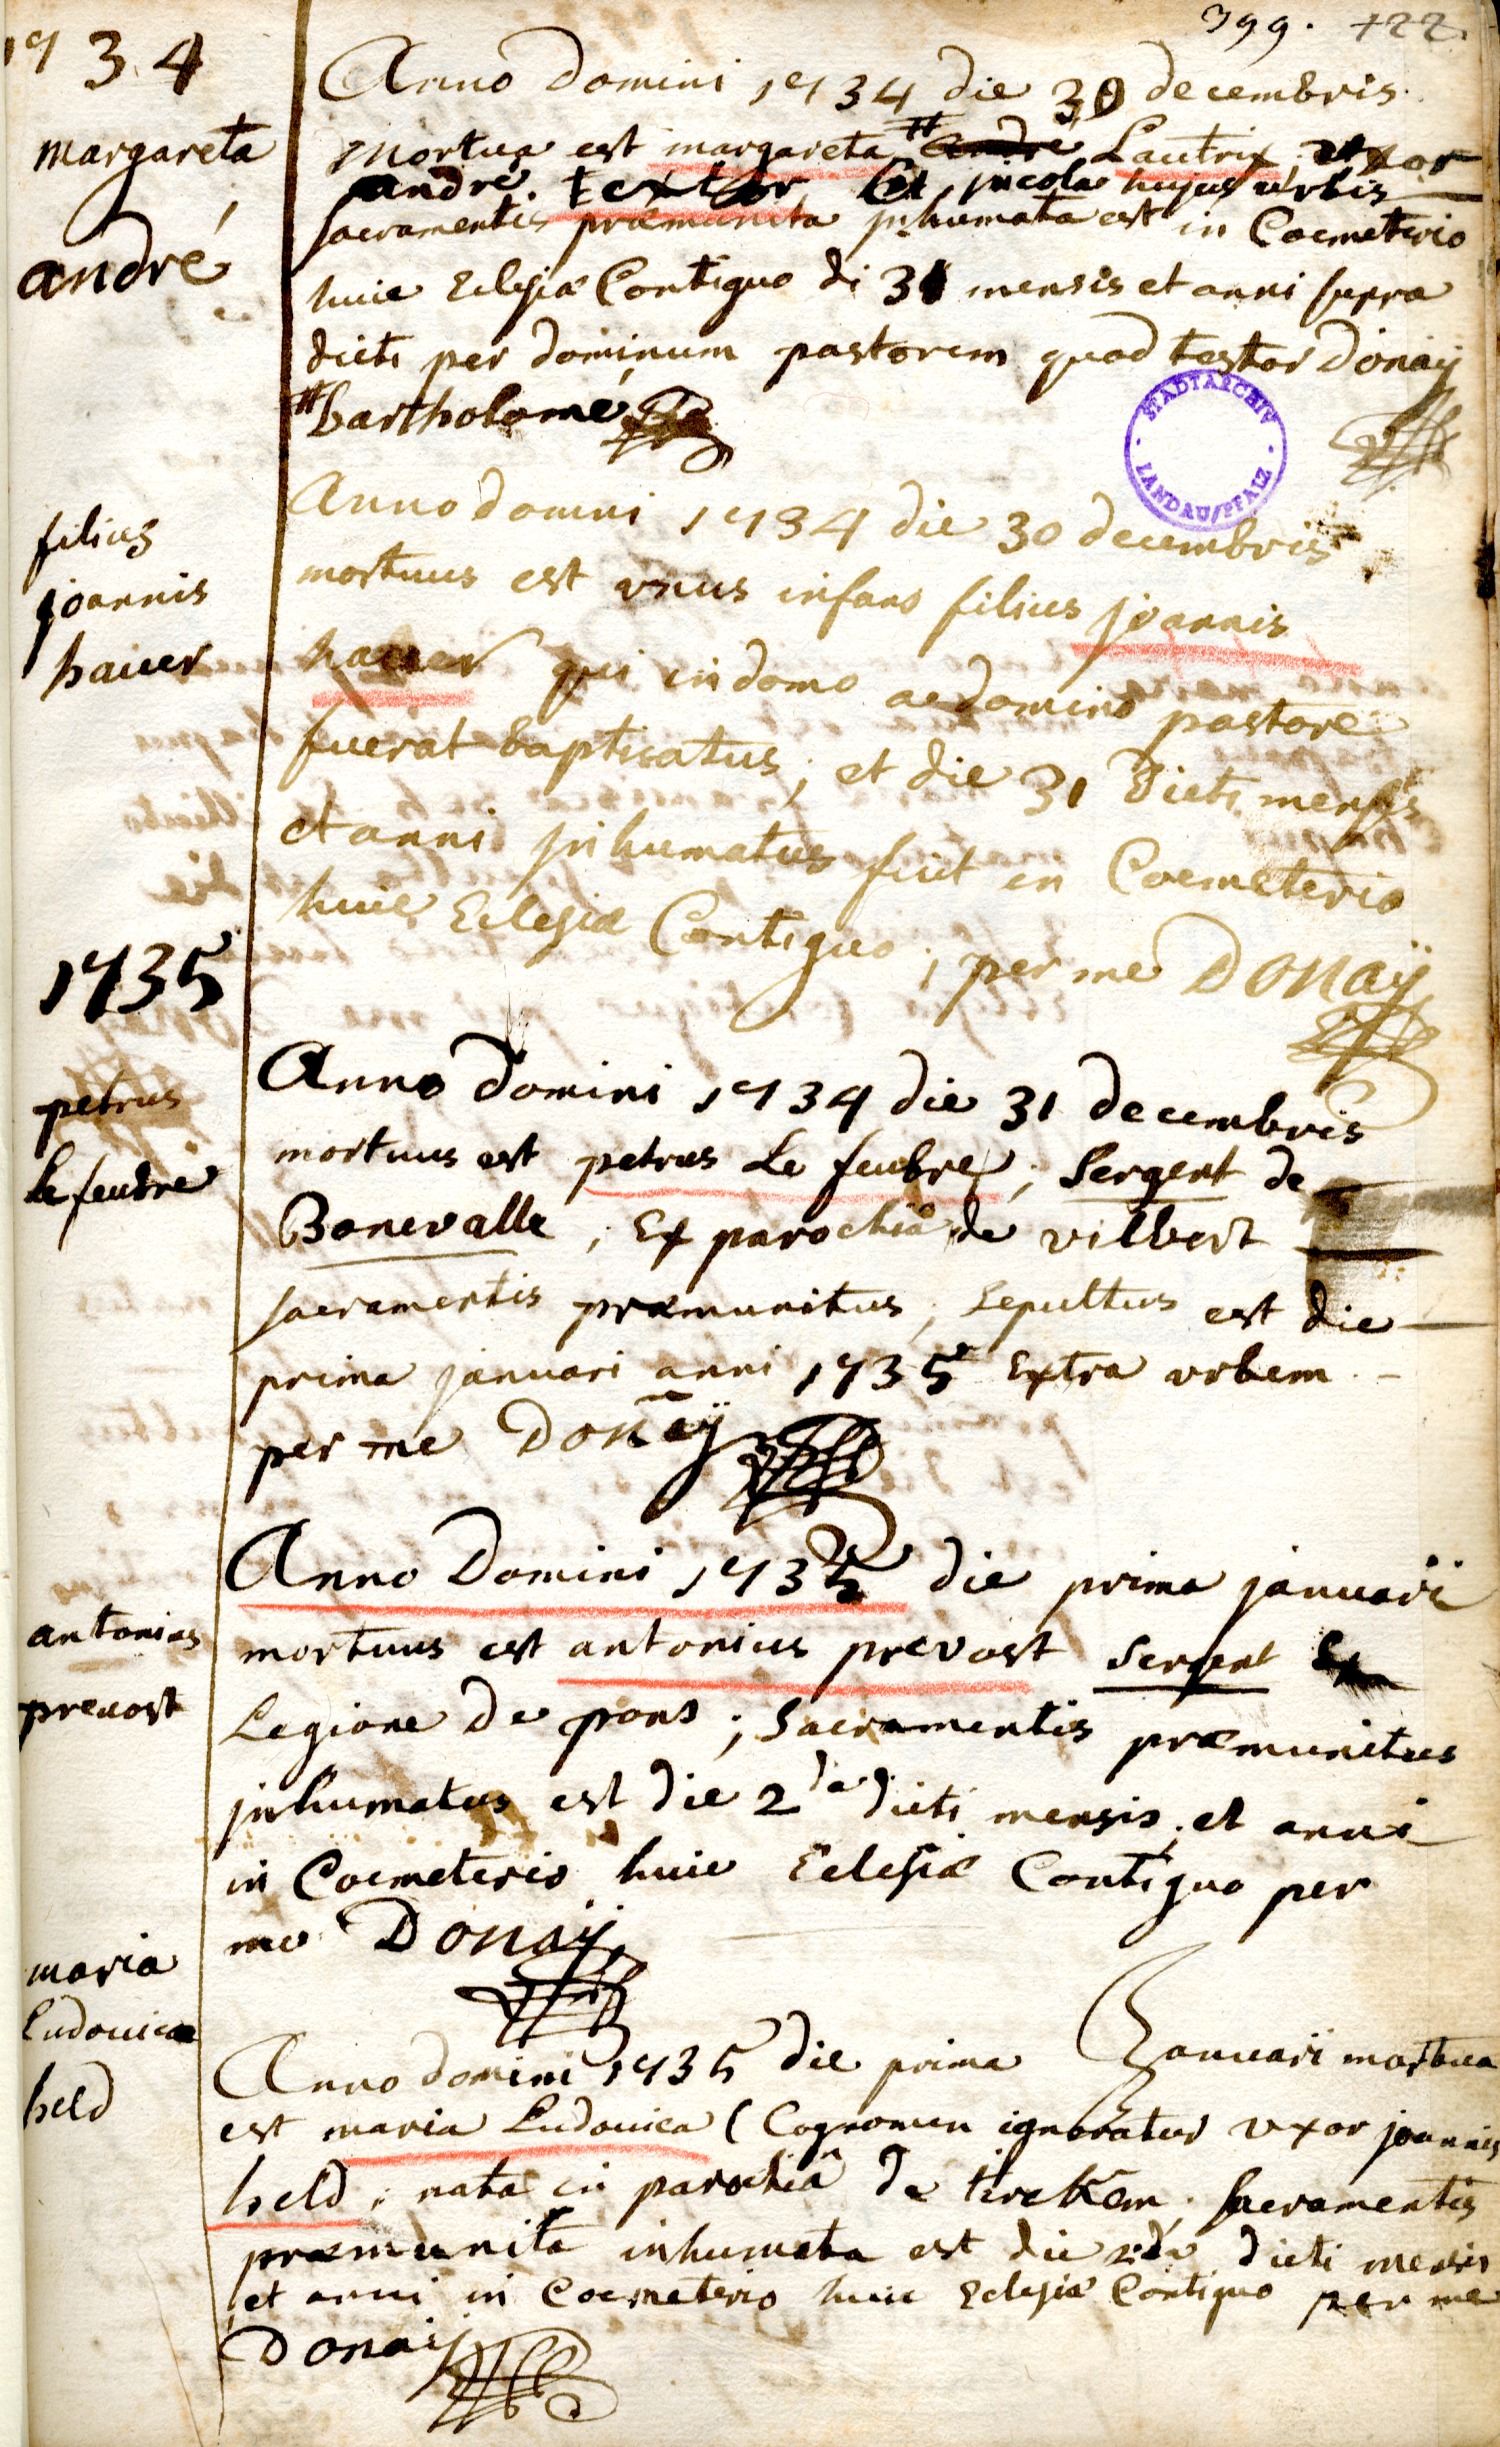 399. 422
1734
Anno Domini 1734 die 30 decembris
margareta
Mortua est margareta # Lautrix uxor
andré. textor et jncola hujus urbis
andré
sacramentis præmunita jnhumata est in Coemeterio
huic Eclesiæ Contiguo di 31 mensis et anni supra
dicti per dominum pastorem quod testor Donaÿ
# bartholomé
STADTARCHIV
LANDAU/PFALZ
filius
joannis
hauer
Anno domini 1734 die 30 decembris
mortuus est vnus infans filius joannis
hauer qui in domo a domino pastore
fuerat baptisatus, et die 31 dicti mensis
et anni jnhumatus fuit in Coemeterio
huic Eclesiæ Contiguo, per me Donaÿ
1735
petrus
Le feudre
Anno Domini 1734 die 31 decembris
mortuus est petrus Le feubre, Sergent de
Bonevalle, Ex parochiâ de vilbert
sacramentis præmunitus, sepultus est die
prima januari anni 1735 Extra urbem
per me Donaÿ
antonius
prevost
Anno Domini 1735 die prima januarii
mortuus est antonius prevost sergent Ex
Legione de pons; sacramentis præmunitus
jnhumatus est die 2da dicti mensis, et anni
in Coemeterio huic Eclesiæ Contiguo per
me Donaÿ
maria
Ludouica
held
Anno domini 1735 die prima Januarii mortua
est maria Ludouica (Cognomen ignoratur uxor joannis
held, nata in parochiâ de tirckem, sacramentis
præmunita inhumata est die 2da dicti mensis
et anni in Coemeterio huic Eclesiæ Contiguo per me
Donaÿ